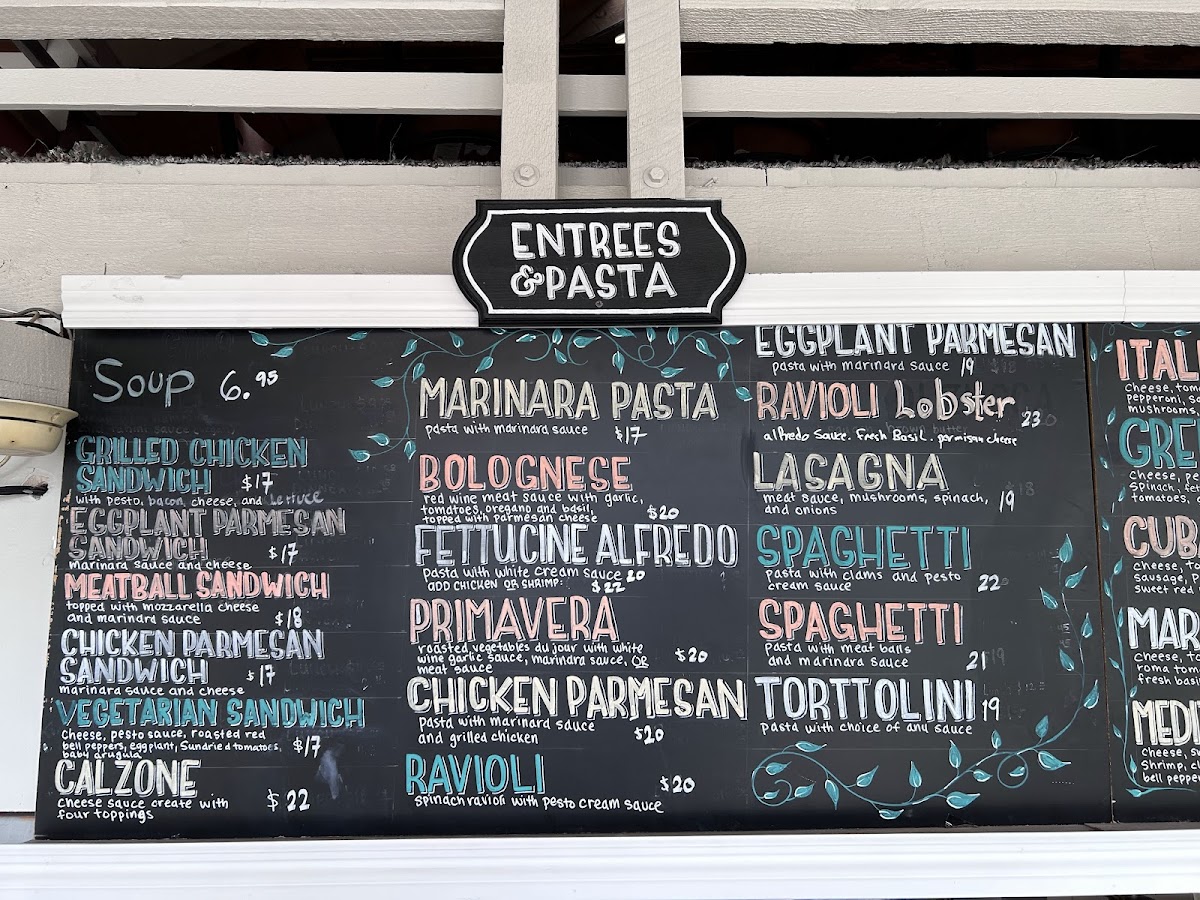 ENTREES
&PASTA
Soup 6.95
GRILLED CHICKEN
SANDWICH $17
with pesto, bacon, cheese, and Lettuce
EGGPLANT PARMESAN
SANDWICH $17
Marinara sauce and cheese
MEATBALL SANDWICH
topped with mozzarella cheese
and marinara sauce $18
CHICKEN PARMESAN
SANDWICH $17
marinara sauce and cheese
VEGETARIAN SANDWICH
Cheese, pesto sauce, roasted red
bell peppers, eggplant, Sundried tomatoes, $17
baby arugula
CALZONE
Cheese sauce create with $22
four toppings
MARINARA PASTA
pasta with marinara sauce $17
BOLOGNESE
red wine meat sauce with garlic,
tomatoes, oregano and basil,
topped with parmesan cheese $20
FETTUCINE ALFREDO
Pasta with white cream sauce 20
ADD CHICKEN OR SHRIMP: $22
PRIMAVERA
roasted vegetables du jour with white
wine garlic sauce, marinara sauce, OR $20
meat sauce
CHICKEN PARMESAN
pasta with marinara sauce
and grilled chicken $20
RAVIOLI $20
spinach ravioli with pesto cream sauce
EGGPLANT PARMESAN
pasta with marinara sauce 19
RAVIOLI Lobster 23
alfredo Sauce. Fresh Basil. parmisan cheese
LASAGNA
meat sauce, mushrooms, spinach, 19
and onions
SPAGHETTI
Pasta with clams and pesto
cream sauce 22
SPAGHETTI
Pasta with meat balls
and marinara sauce 21
TORTTOLINI 19
Pasta with choice of any sauce
ITALI
Cheese, tom
pepperoni, sa
mushrooms
GREE
Cheese, pe
Spinach, fet
tomatoes,
CUB
cheese, to
sausage, p
sweet red
MAR
Cheese, to
roma tom
fresh basi
MEDI
Cheese, s
Shrimp, c
bell peppe